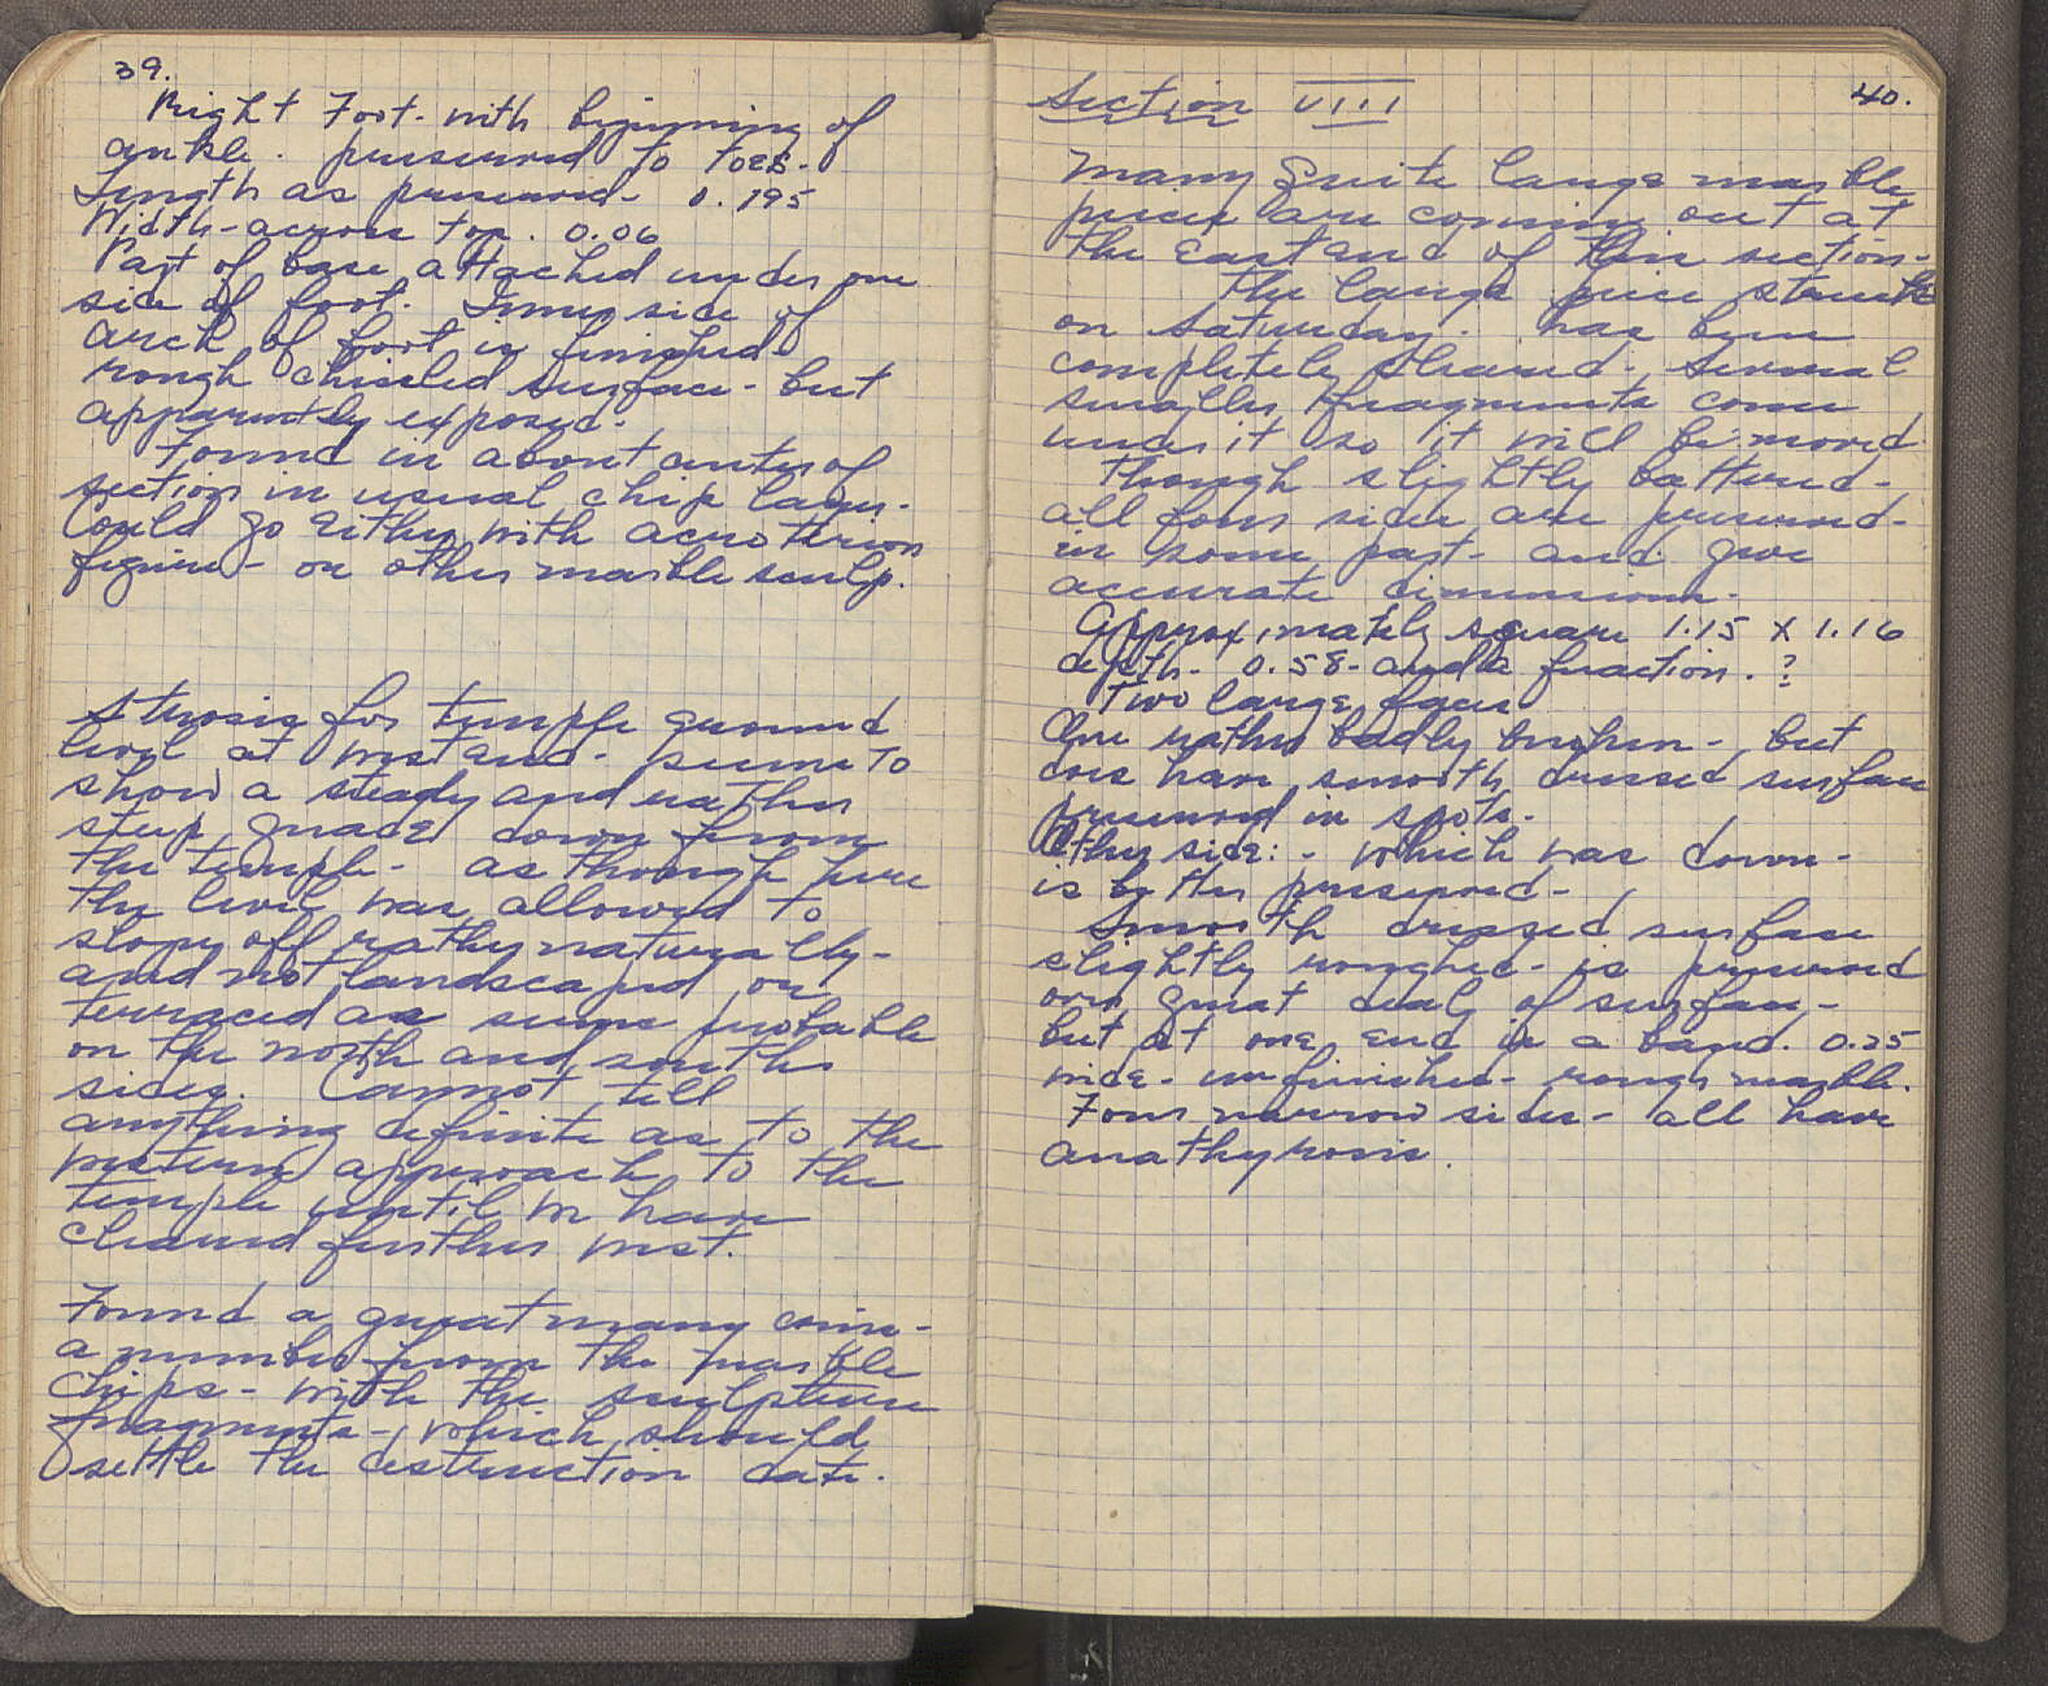 39.
Right Foot. with beginning of
ankle. preserved to toes.
Length as preserved - 0.195
Width - across top. 0.06
Part of base attached under one
side of foot. Inner side of
arch of foot is finished
rough chiseled surface - but
apparently exposed.
Found in about center of
section in usual chip layer.
Could go either with acroterion
figure - or other marble sculp.
Sterosis for temple ground
level at west end - seems to
show a steady and rather
steep grade down from
the temple - as though here
the level was allowed to
slope off rather naturally -
and not landscaped or
terraced as seems probable
on the north and south
sides. Cannot tell
anything definite as to the
western approach to the
temple until we have
cleared further west.
Found a great many coins -
a number from the marble
chips - with the sculpture
fragments - which should
settle the destruction date.
40.
Section VIII
Many quite large marble
pieces are coming out at
the East end of this section -
The large piece struck
on Saturday. has been
completely cleared. Several
smaller fragments come
under it so it will be moved
Though slightly battered -
all four sides are preserved -
in some part - and give
accurate dimensions -
Approximately square 1.15 x 1.16
depth - 0.58 - and a fraction. ?
Two large faces
One rather badly broken - but
does have smooth dressed surface
preserved in spots -
Other side: - which was down -
is better preserved -
Smooth dressed surface
slightly roughed - is preserved
over great deal of surface -
but at one end is a band. 0.25
wide - unfinished - rough marble.
Four narrow sides - all have
anathyrosis.